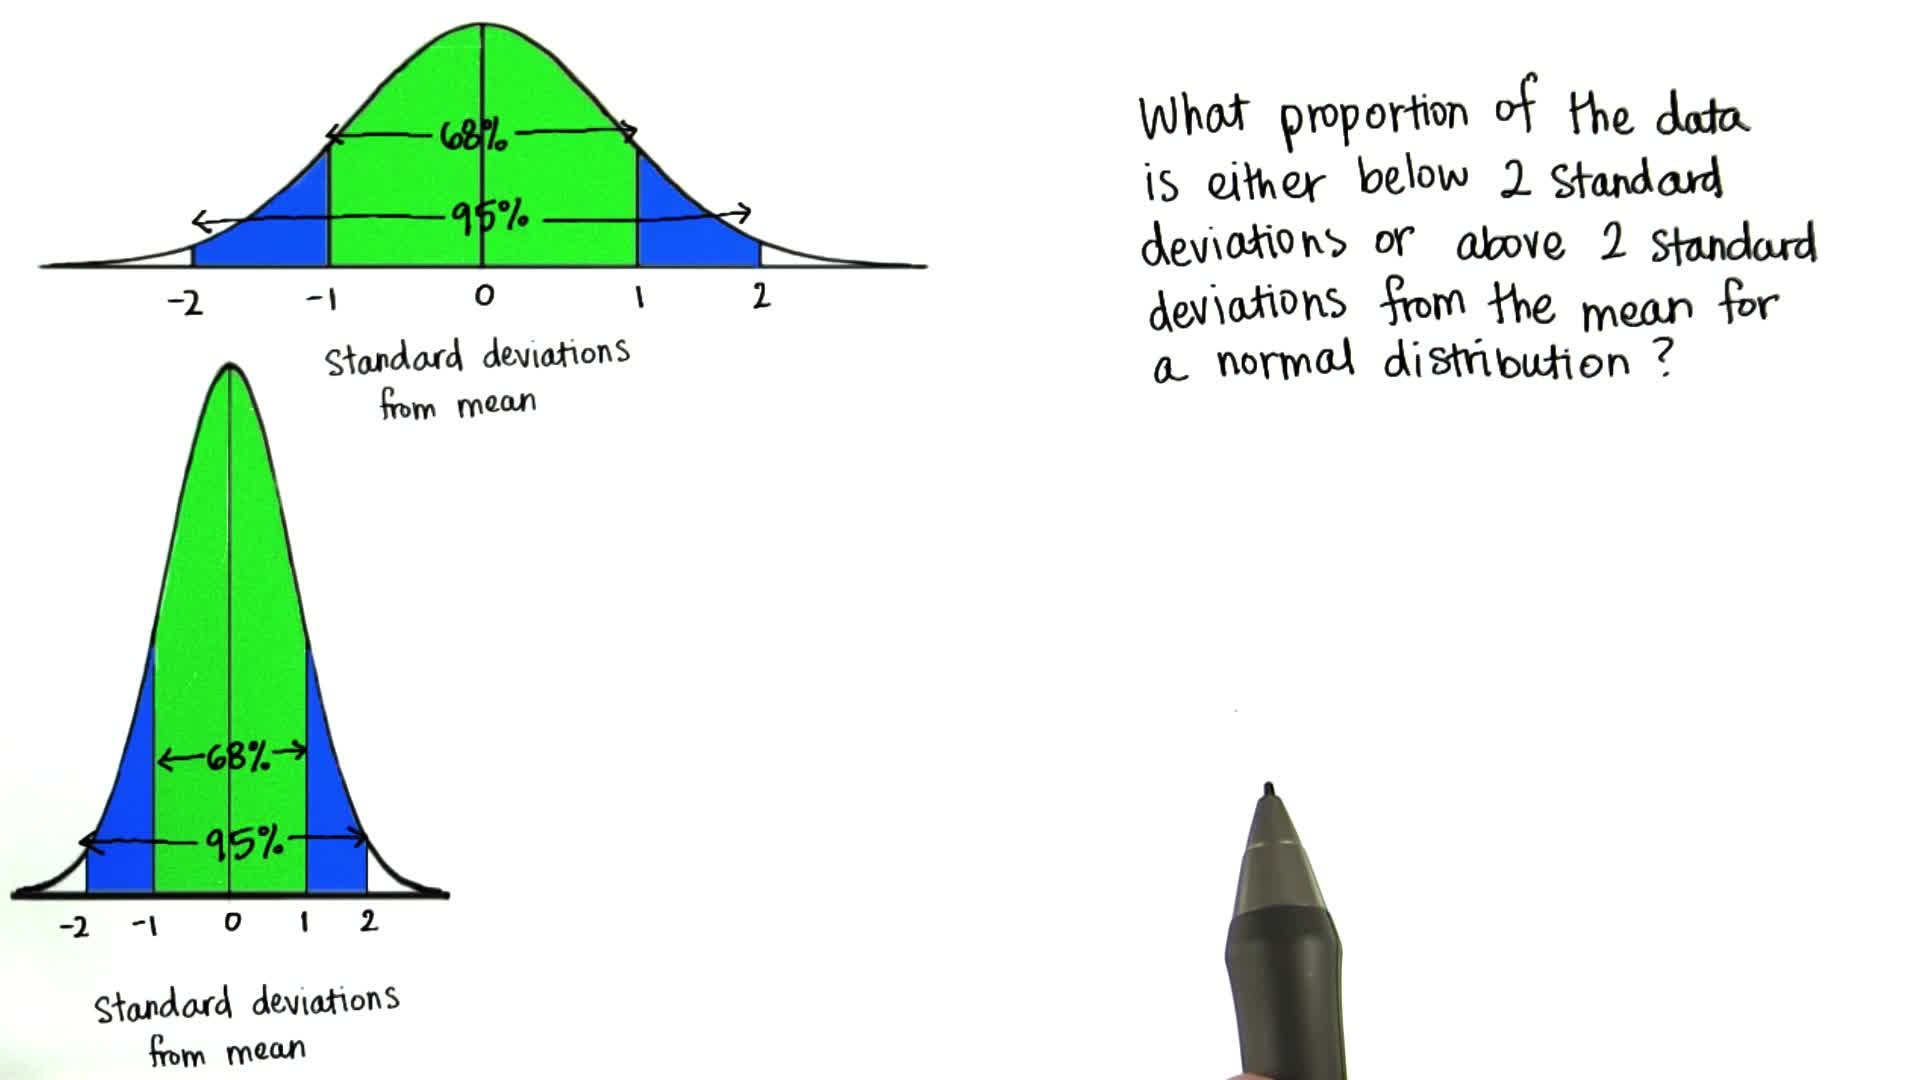 68%
95%
-2 -1 0 1 2
Standard deviations
from mean
68%
95%
-2 -1 0 1 2
Standard deviations
from mean
What proportion of the data
is either below 2 standard
deviations or above 2 standard
deviations from the mean for
a normal distribution?